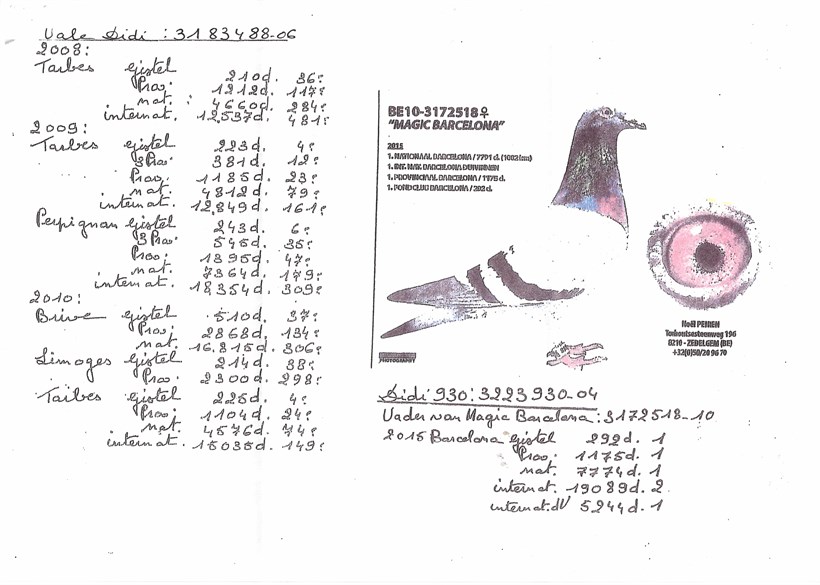 Vale Didi : 3183488-06
2008:
Tarbes Gistel 210d. 36e
Prov: 1212d. 117e
nat. : 4660d. 284e
internat. 12.537d. 481e
2009:
Tarbes Gistel 223d. 4e
3Prov: 381d. 12e
Prov: 1185d. 23e
nat. 4812d. 79e
internat. 12.849d. 161e
Perpignan Gistel 243d. 6e
3Prov: 545d. 35e
Prov: 1395d. 47e
nat. 7364d. 179e
internat. 18354d. 309e
2010:
Brive Gistel 510d. 37e
Prov: 2868d. 134e
nat. 16.815d. 306e
Limoges Gistel 214d. 38e
Prov: 2300d. 298e
Tarbes Gistel 225d. 4e
Prov: 1104d. 24e
nat. 4576d. 74e
internat. 15035d. 149e
BE10-3172518♀
"MAGIC BARCELONA"
2015
1. NATIONAAL BARCELONA / 7791 d. (1002 km)
1. INT. NAT. BARCELONA DUIVINNEN
1. PROVINCIAAL BARCELONA / 1175 d.
1. FONDCLUB BARCELONA / 292 d.
PHOTOGRAPHY
Noël PEIREN
Torhoutsesteenweg 196
8210 - ZEDELGEM (BE)
+32(0)50/20 96 70
Didi 930: 3223930-04
Vader van Magic Barcelona: 3172518-10
2015 Barcelona Gistel 292d. 1
Prov: 1175d. 1
nat. 7774d. 1
internat. 19089d. 2
internat.dV 5244d. 1